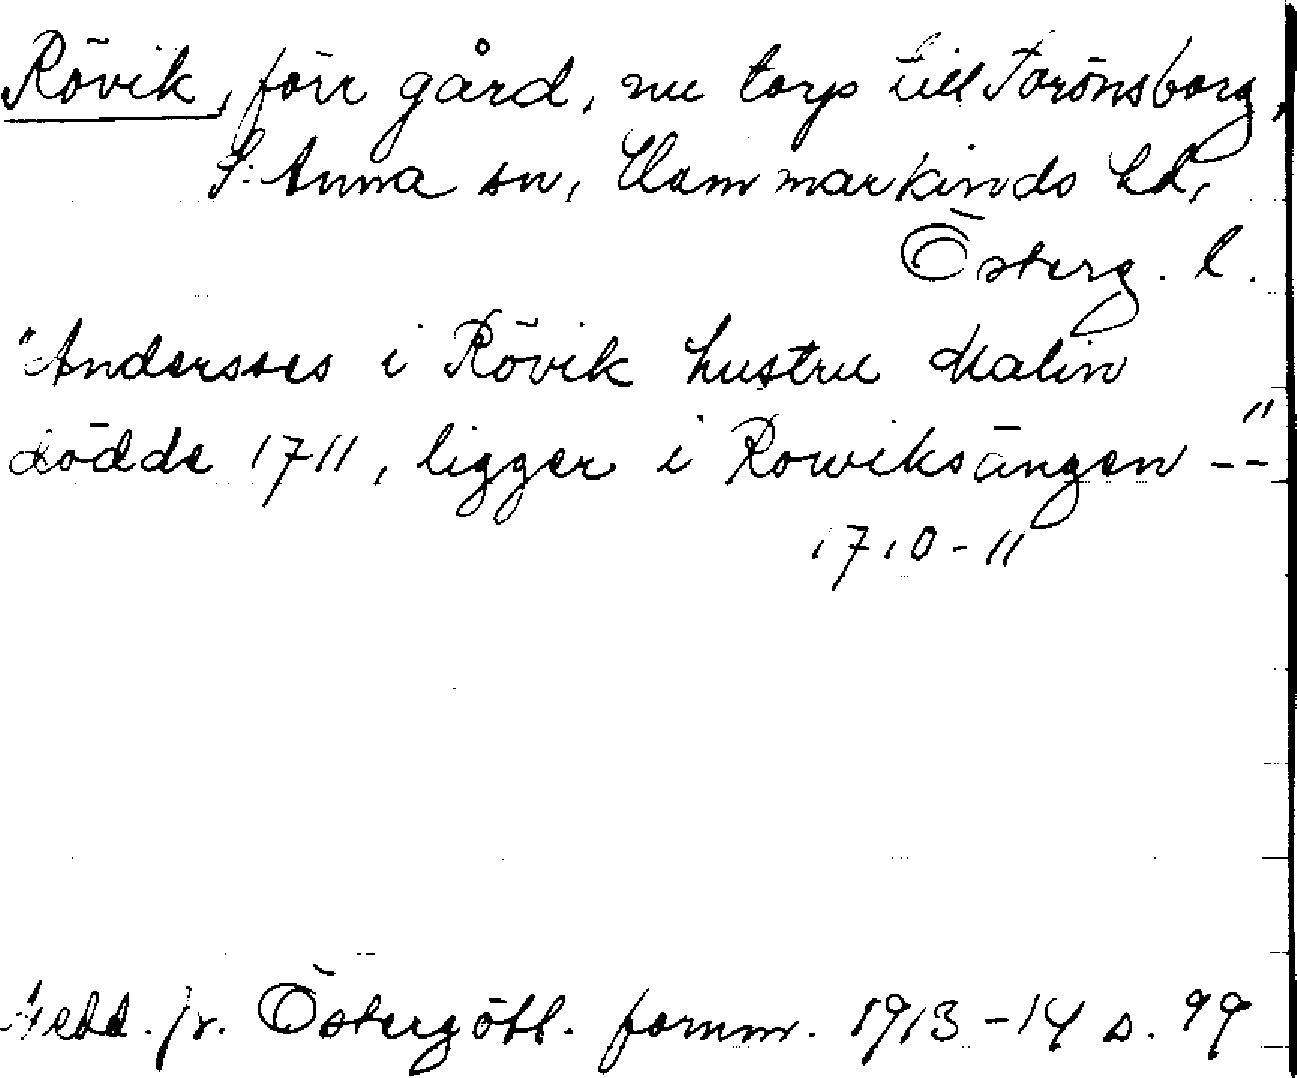 Rövik, förr gård, nu torp till Torönsborg,
S:t Anna sn, Hammarkinds hd,
Österg. l.
"Andersses i Rövik hustru Malin
dödde 1711, ligger i Rowiksängen --"
1710-11
Medd. fr. Östergötl. fornm. 1913-14 s. 99